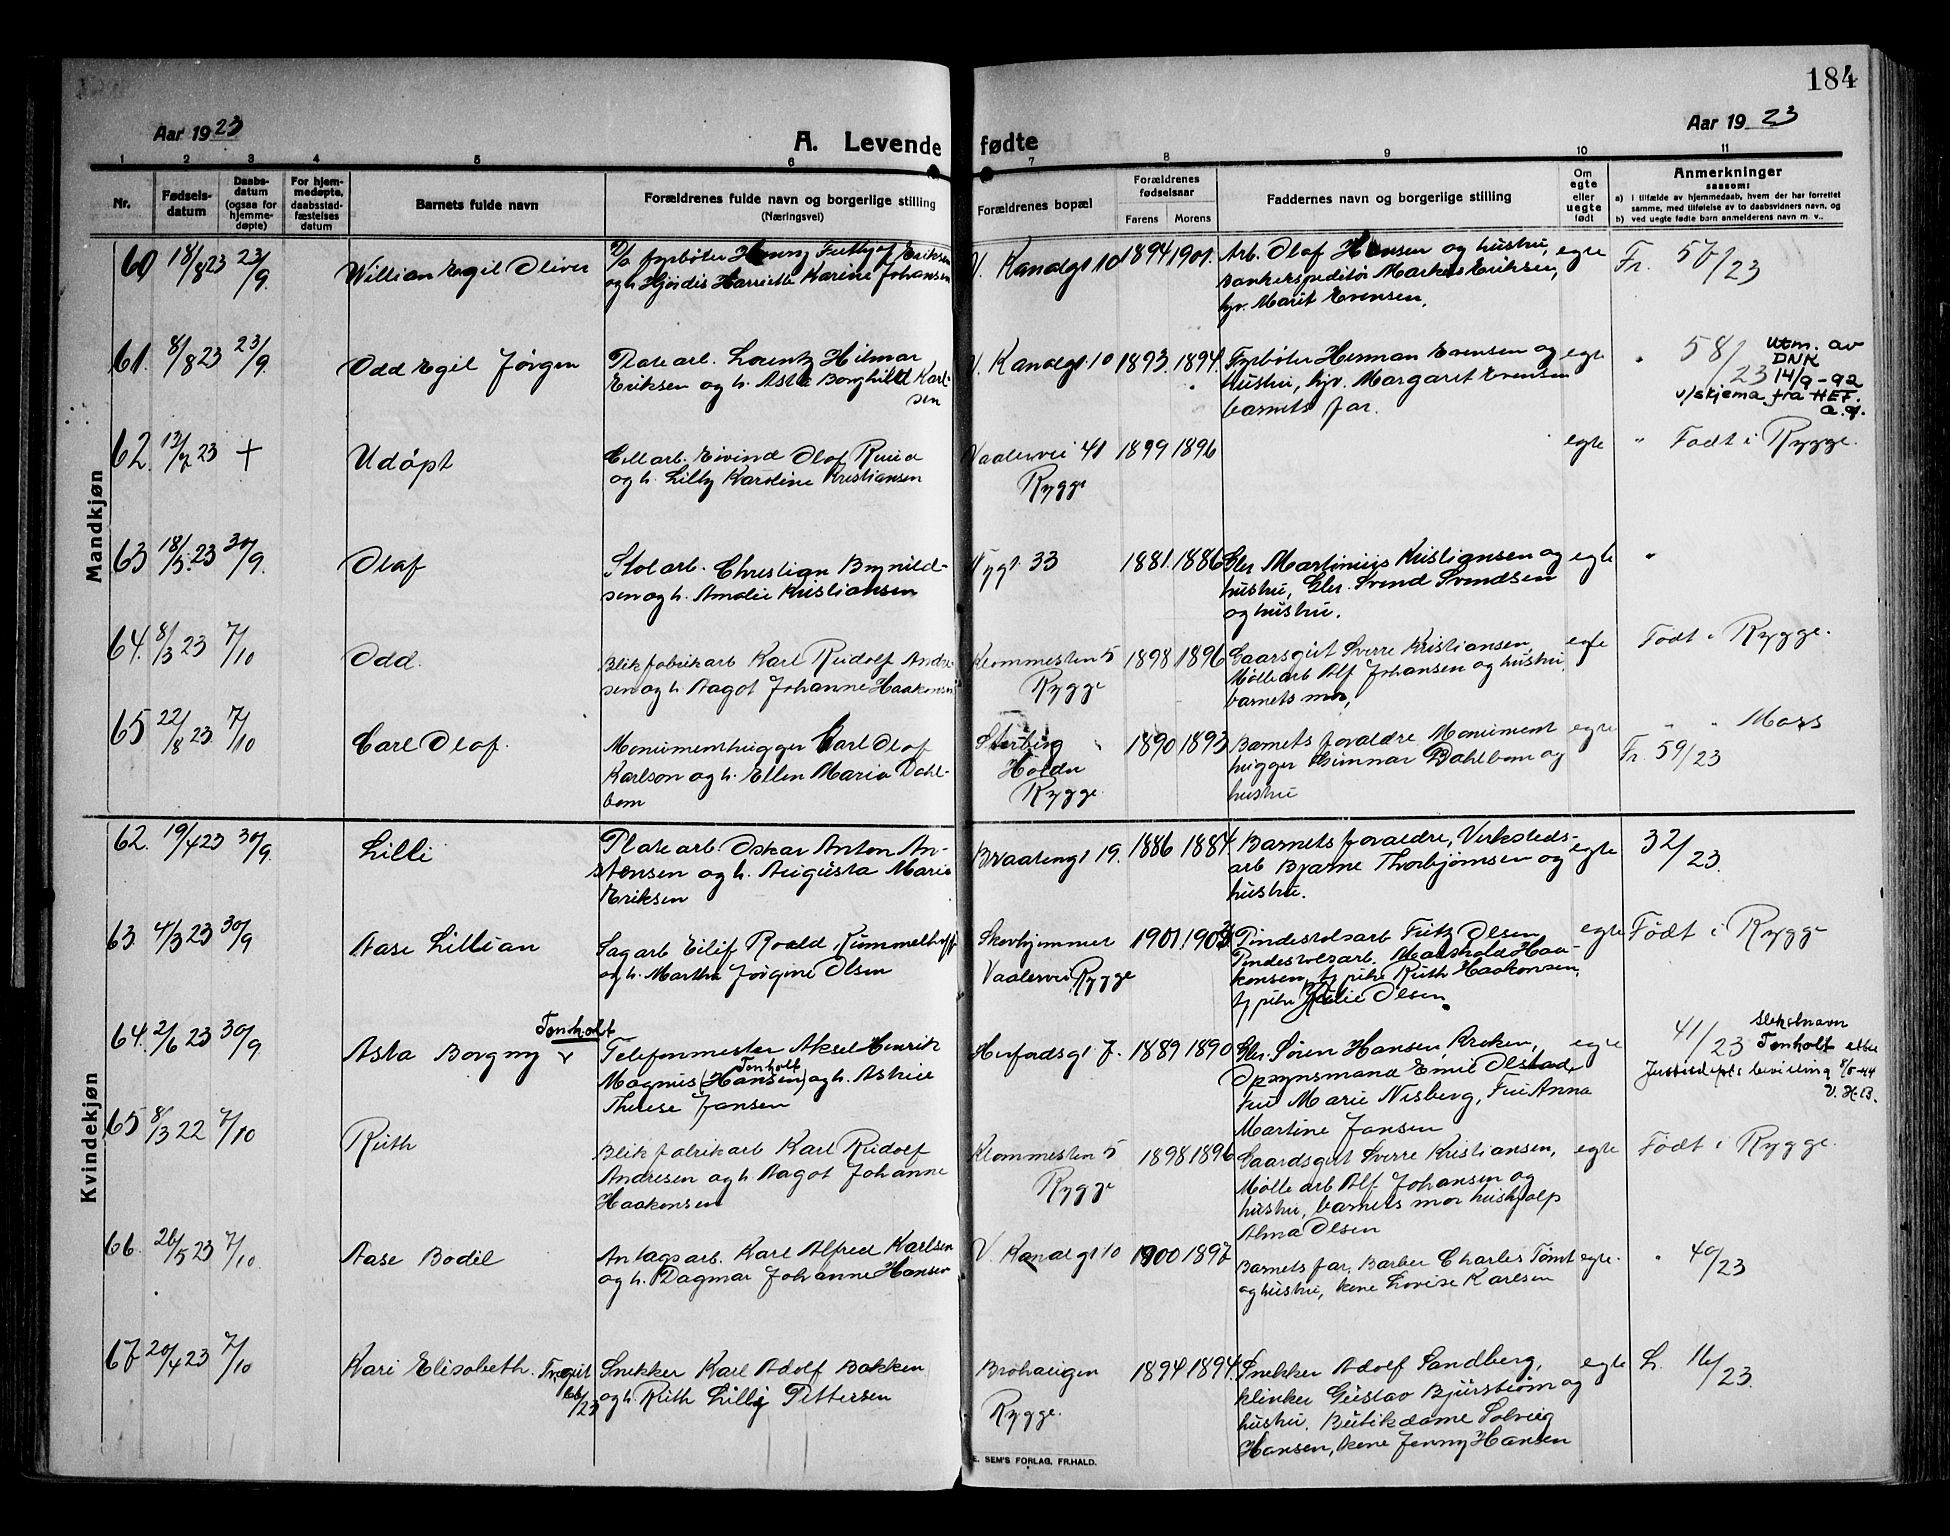 184
Aar 1923
A. Levende fødte
Aar 1923
1 2 3 4 5 6 7 8 9 10 11
Nr.
Fødsels-
datum
Daabs-
datum
(ogsaa for
hjemme-
døpte)
For hjem-
medøpte,
daabsstad-
fæstelses
datum
Barnets fulde navn
Forældrenes fulde navn og borgerlige stilling
(Næringsvei)
Forældrenes bopæl
Forældrenes
fødselsaar
Farens Morens
Faddernes navn og borgerlige stilling
Om
egte
eller
uegte
født
Anmerkninger
saasom:
a) i tilfælde av hjemmedaab, hvem der har forrettet
samme, med tilføielse av to daabsvidners navn, og
b) ved uegte fødte barn anmelderens navn m. v..
Mandkjøn
60 18/8 23 23/9 Willian Egil Oliver
fyrbøter Henry Erikse
og h. Hjördis Harriette Karine Johansen
V. Kanalgt 10 1894 1901.
Arb. Olaf Hansen og hustru,
Markus Eriksen,
hjv. Marit Evensen.
egte Fr. 57/23
61. 8/8 23 23/9 Odd Egil Jørgen
Plate arb. Lorentz Hilmar
Eriksen og h. Asta Borghild Karl-
sen
V. Kanalgt 10 1893. 1894.
Fyrbøter Herman Evensen og
hustru, hjv. Margaret Evensen
barnets far.
egte " 58/23
Utm. av
DNK
14/9-92
v/skjema fra HEF.
62. 23 + Udøpt
Cell arb. Eivind Olaf
og h. Lilly Karoline Kristiansen
Vaalervei 41
Rygge
1899 1896
egte " Født i Rygge.
63 18/5. 23 30/9. Olaf
Stol arb. Christian Brynild-
sen og h. Amalie Kristiansen
33 1881. 1886
Gbr. Martinius Kristiansen og
hustru, Gbr. Svend Svendsen
og hustru.
egte "
64. 8/3 23 7/10 Odd.
Blikfabrikarb Karl Rudolf Andre-
sen og h. Aagot Johanne Haakonsen
Klommesten 5
Rygge
1898 1896
Gaarsgut Sverre Kristiansen,
Mølle arb Alf Johansen og hustru,
barnets mor,
egte Født i Rygge.
65 22/8 23. 7/10 Carl Olaf.
Monumenthugger Carl Olaf
Karlson og h. Ellen Maria Dahl-
bom
Holder
Rygge.
1890 1893
Barnets foraldre Monument
hugger Gunnar Dahlbom og
hustru
egte " " Moss
Fr. 59/23
Kvindekjøn
62. 19/4 23 30/9. Lilli
Plate arb. Oskar Anton An-
stensen og h. Augusta Marie
Eriksen
Braatengt 19. 1886 1884.
Barnets foraldre, Virksteds-
arb Bjarne Thorbjørnsen og
hustru.
egte 32/23.
63. 4/3 23 30/9 Aase Lillian
Sagarb Eilif Roald Rummelhoff
og h. Martha Jørgine Olsen
Skovhjemmet
Vaalervei Rygge
1901.
Pindestolsarb Fritz Olsen
Pindestolsarb. Haa-
konsen, tj pike Ruth Haakonsen,
tj pike Julie Olsen.
egte Født i Rygge
64. 2/6 23 30/9 Asta Borgny Tenholt
Telefonmester Aksel Henrik
Magnus (Hansen) Tenholt og h.
Therese Jansen
Herfordsgt 7. 1889 1890
Gbr. Søren Hansen,
Opsynsmand Emil Olstad,
Fru Marie Nisberg, Fru Anna
Martine Jansen
egte 41/23
slektnavn
Tenholt etter
Justisdepts bevilling 8/5-44
V. H.B.
65 8/3 22 7/10 Ruth
Blikfabrikarb Karl Rudolf
Andresen og h. Aagot Johanne
Haakonsen
Klommesten 5
Rygge
1898 1896
Gaardsgut Sverre Kristiansen,
Mølle arb Alf Johansen og
hustru, barnets mor hushjælp
Alma Olsen
egte Født i Rygge.
66. 26/5 23 7/10. Aase Bodil
Anlagsarb. Karl Alfred Karlsen
og h. Dagmar Johanne Hansen
V. Kanalgt 10 1900 1897
Barnets far, Barber Charles Tømt
og hustru, kone Lovise Karlsen
egte. " 40/23
67 20/4 23 7/10 Kari Elisabeth.
Snekker Karl Adolf Bakken
og h. Ruth Lilly Pettersen
Brohaugen
Rygge.
1894 1894.
Snekker Adolf Sandberg,
klinker Gustav Bjurstrøm og
hustru, Butikdame Solveig
Hansen, kone Jenny Hansen
egte L. 16/23.
E. SEM'S FORLAG, FR.HALD.